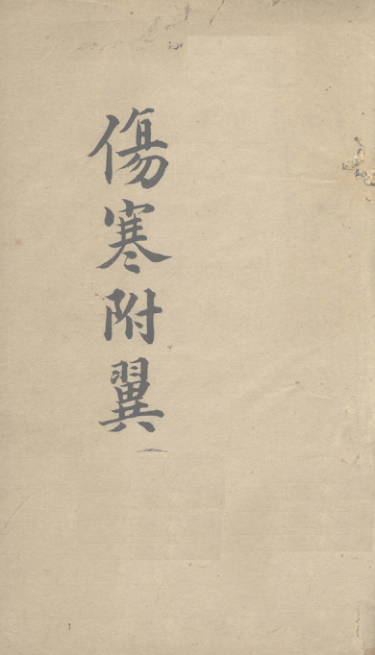 傷寒附翼